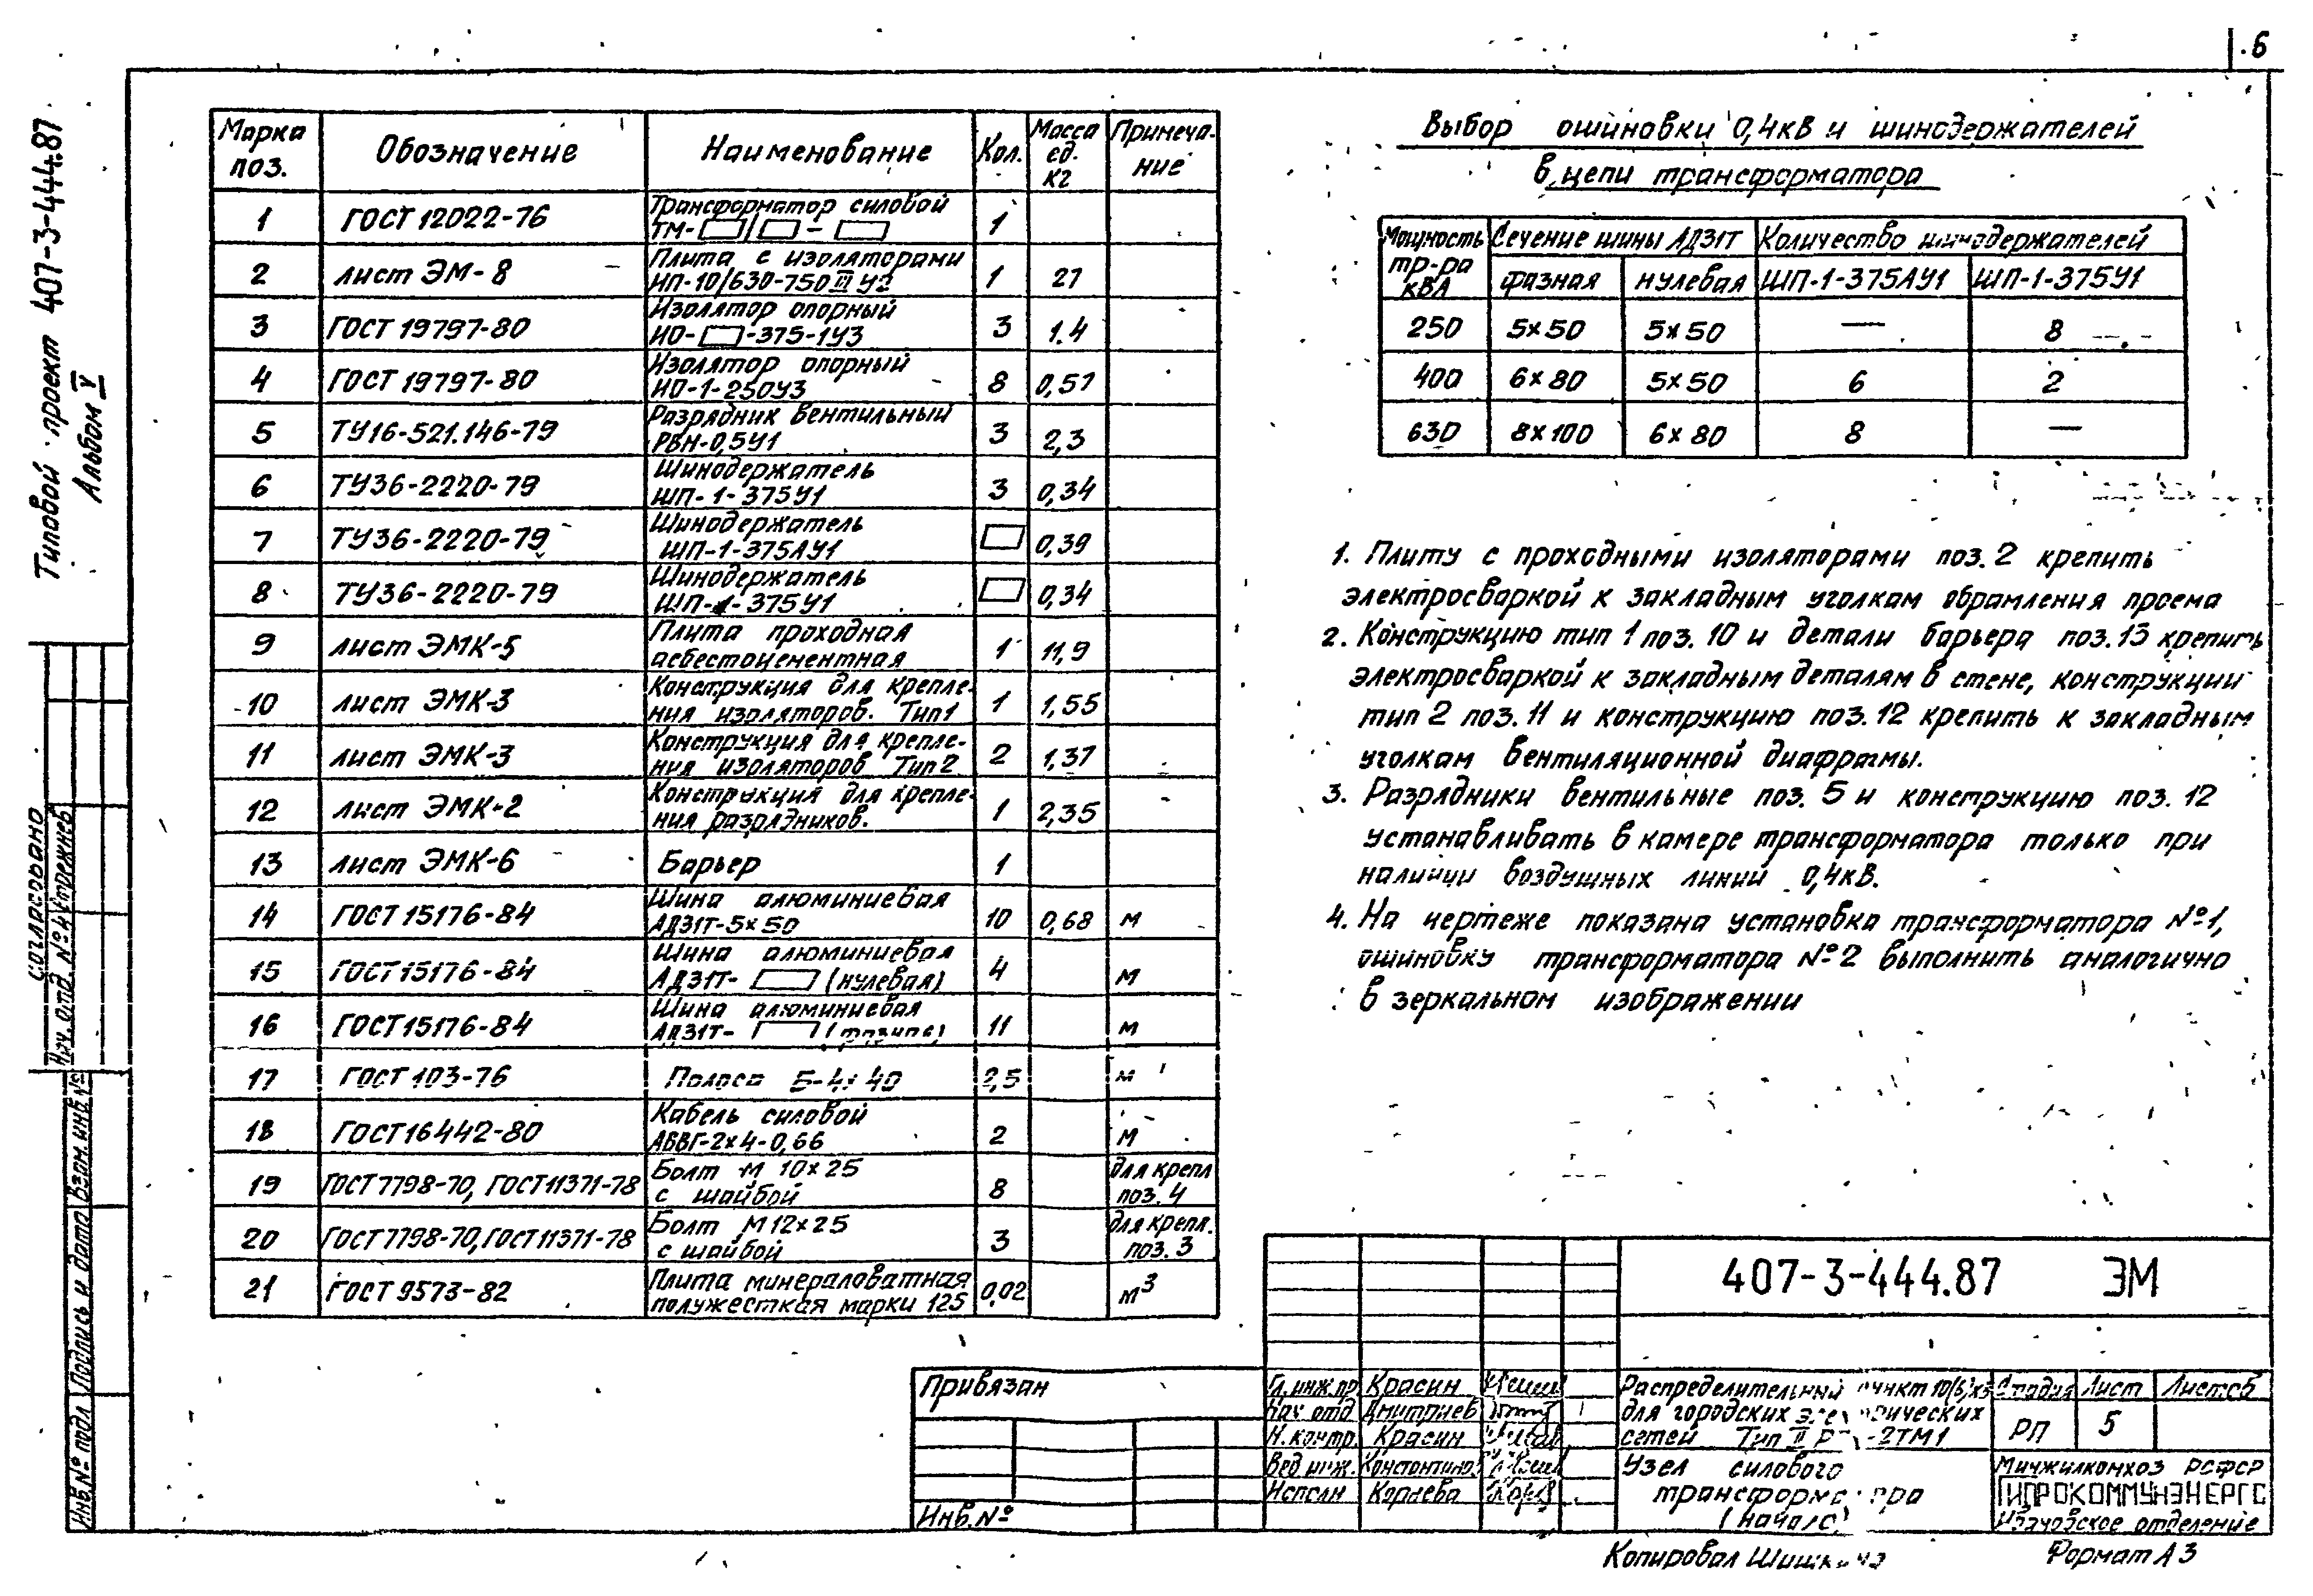 6
Типовой проект 407-3-444.87
Альбом V
Марка поз. Обозначение Наименование Кол. Масса ед. кг Примечание
1 ГОСТ 12022-76 Трансформатор силовой
ТМ- / - 1
2 лист ЭМ-8 Плита с изоляторами
ИП-10/630-750 III У2 1 27
3 ГОСТ 19797-80 Изолятор опорный
ИО- -375-1У3 3 1.4
4 ГОСТ 19797-80 Изолятор опорный
ИО-1-250У3 8 0,57
5 ТУ16-521.146-79 Разрядник вентильный
РВН-0,5У1 3 2,3
6 ТУ36-2220-79 Шинодержатель
ШП-1-375У1 3 0,34
7 ТУ36-2220-79 Шинодержатель
ШП-1-375АУ1 0,39
8 ТУ36-2220-79 Шинодержатель
ШП-1-375У1 0,34
9 лист ЭМК-5 Плита проходная
асбестоцементная 1 11,9
10 лист ЭМК-3 Конструкция для крепле-
ния изоляторов. Тип1 1 1,55
11 лист ЭМК-3 Конструкция для крепле-
ния изоляторов Тип2 2 1,37
12 лист ЭМК-2 Конструкция для крепле-
ния разрядников. 1 2,35
13 лист ЭМК-6 Барьер 1
14 ГОСТ 15176-84 Шина алюминиевая
АД31Т-5×50 10 0,68 м
15 ГОСТ 15176-84 Шина алюминиевая
АД31Т- (нулевая) 4 м
16 ГОСТ 15176-84 Шина алюминиевая
АД31Т- 11 м
17 ГОСТ 103-76 Полоса Б-4×40 2,5 м
18 ГОСТ 16442-80 Кабель силовой
АВВГ-2×4-0,66 2 м
19 ГОСТ 7798-70, ГОСТ 11371-78 Болт М 10×25
с шайбой 8 для крепл поз. 4
20 ГОСТ 7798-70, ГОСТ 11371-78 Болт М12×25
с шайбой 3 для крепл. поз. 3
21 ГОСТ 9573-82 Плита минераловатная
полужесткая марки 125 0,02 м³
Выбор ошиновки 0,4кВ и шинодержателей
в цепи трансформатора
Мощность тр-ра кВА Сечение шины АД31Т Количество шинодержателей
фазная нулевая ШП-1-375АУ1 ШП-1-375У1
250 5×50 5×50 — 8
400 6×80 5×50 6 2
630 8×100 6×80 8 —
1. Плиту с проходными изоляторами поз. 2 крепить
электросваркой к закладным уголкам обрамления проема
2. Конструкцию тип 1 поз. 10 и детали барьера поз. 13 крепить
электросваркой к закладным деталям в стене, конструкции
тип 2 поз. 11 и конструкцию поз. 12 крепить к закладным
уголкам вентиляционной диафрагмы.
3. Разрядники вентильные поз. 5 и конструкцию поз. 12
устанавливать в камере трансформатора только при
наличии воздушных линий 0,4кВ.
4. На чертеже показана установка трансформатора №1,
ошиновку трансформатора №2 выполнить аналогично
в зеркальном изображении
Согласовано
Нач. отд. №4 Стрежнев
Инв.№ подл Подпись и дата Взам.инв.№
407-3-444.87 ЭМ
Привязан
Инв.№
Гл.инж.пр Красин
Нач отд Дмитриев
Н.контр. Красин
Вед инж.
Исполн
Распределительный пункт 10(6)
для городских электрических
сетей Тип II -2ТМ1
Стадия Лист Листов
РП 5
Узел силового
трансформатора
(начало)
Минжилкомхоз РСФСР
ГИПРОКОММУНЭНЕРГО
Ивановское отделение
Копировал Формат А3